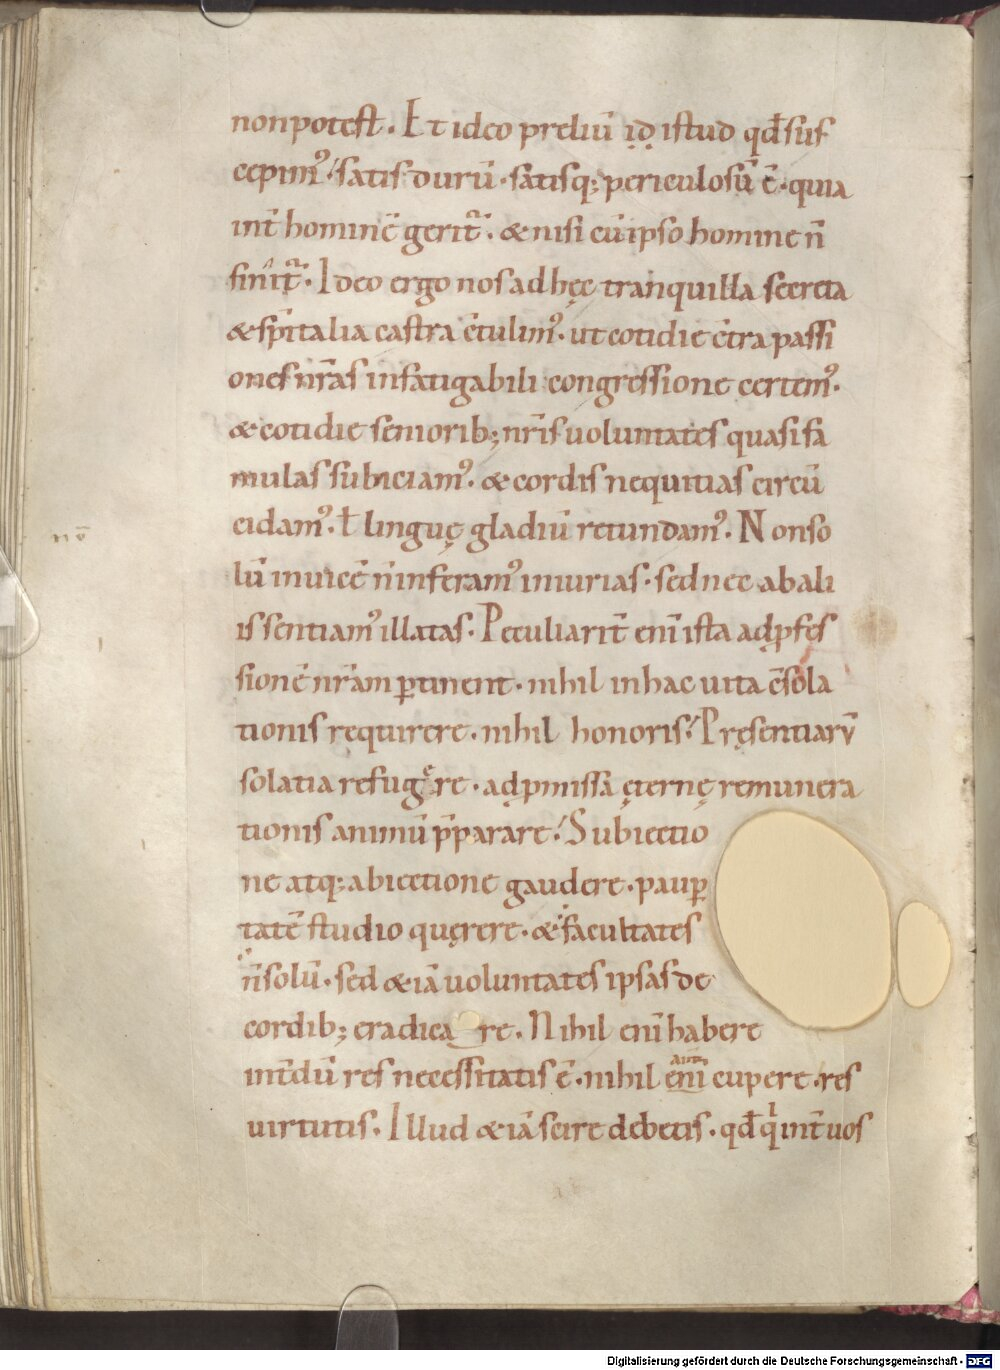 non potest. Et ideo preliū ıḍ istud qđ sus
cepim᷒. satis durū. satisq; periculosū ē. quia
int̄ hominē gerit᷑. & nisi cū ipso homine n̄
finit᷑. Ideo ergo nos ad hęc tranquilla secreta
& sp̄italia castra c̄tulim᷒. ut cotidie c̄tra passi
ones nr̄as infatigabili congressione certem᷒.
& cotidie seniorib; nr̄is uoluntates quasi fa
mulas subiciam᷒. & cordis nequitias circū
cidam᷒. ł linguę gladiū retundam᷒. Non so
lū inuicē n̄ inferam᷒ iniurias. sed nec ab ali
is sentiam᷒ illatas. Peculiarit̄ eni᷒ ista ad ꝓfes
sionē nr̄am ꝑtinent. nihil in hac uita c̄sola
tionis requirere. nihil honoris. Pręsentiarū
solatia refugere. ad ꝓmissā ęternę remunera
tionis animū p̄parare. Subiectio
ne atq; abiectione gaudere. pauꝑ
tatē studio quęrere. & facultates
n̄ solū. sed & iā uoluntates ipsas de
cordib; eradicare. Nihil eni᷒ habere
int̄dū res necessitatis ē. nihil eni᷒ cupere. res
uirtutis. Illud & iā scire debetis. qđ q̍ int̄ uos
Digitalisierung gefördert durch die Deutsche Forschungsgemeinschaft - DFG